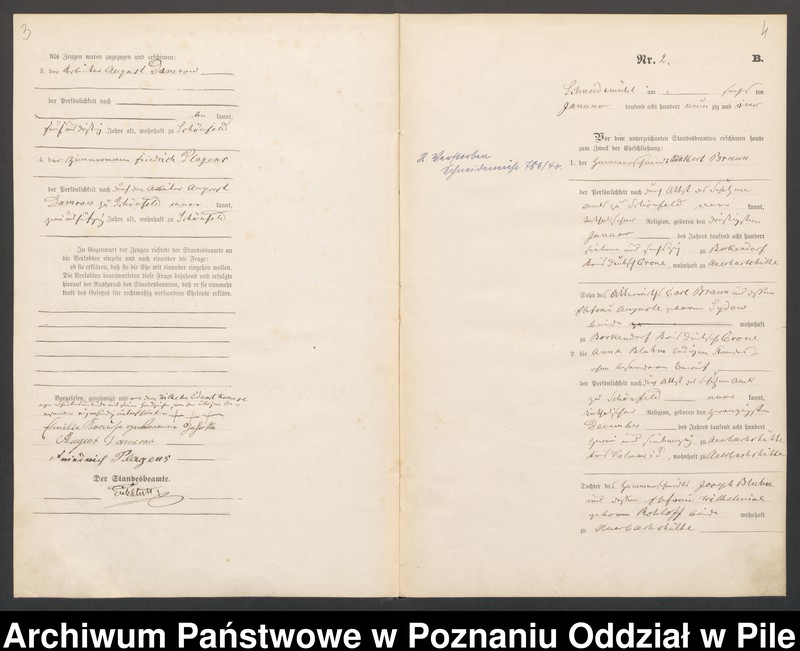 3
Als Zeugen waren zugezogen und erschienen:
3. der Arbeiter August Damerow
der Persönlichkeit nach
be kannt,
fünfunddreißig Jahre alt, wohnhaft zu Schönfeld
4. der Zimmermann Friedrich Plagens
der Persönlichkeit nach durch den Arbeiter August
Damerow zu Schönfeld aner kannt,
zweiundfünfzig Jahre alt, wohnhaft zu Schönfeld
In Gegenwart der Zeugen richtete der Standesbeamte an
die Verlobten einzeln und nach einander die Frage:
ob sie erklären, daß sie die Ehe mit einander eingehen wollen.
Die Verlobten beantworteten diese Frage bejahend und erfolgte
hierauf der Ausspruch des Standesbeamten, daß er sie nunmehr
kraft des Gesetzes für rechtmäßig verbundene Eheleute erkläre.
Vorgelesen, genehmigt und von dem Wilhelm Eduard
+ + +
Emilie geborene
August Damerow
Friedrich Plagens
Der Standesbeamte.
4
Nr. 2.
B.
Schneidemühl am sechs ten
Januar tausend acht hundert neun zig und
Vor dem unterzeichneten Standesbeamten erschienen heute
zum Zweck der Eheschließung:
1. der Hammerschmidt Albert Braun
der Persönlichkeit nach durch Attest des Schulzen
amts zu Schönfeld aner kannt,
katholischer Religion, geboren den dreißigsten
Januar des Jahres tausend acht hundert
siebenundsechzig zu Borkendorf
Kreis Deutsch Crone, wohnhaft zu Auerbachshütte
Sohn des Carl Braun und dessen
Ehefrau Auguste geborene Sydow
beide wohnhaft
zu Borkendorf Kreis Deutsch Crone
2. die Anna Bluhm ledigen Standes,
ohne besonderen Beruf
der Persönlichkeit nach durch Attest des Schulzen Amts
zu Schönfeld aner kannt,
katholischer Religion, geboren den zwanzigsten
December des Jahres tausend acht hundert
zwei und siebenzig zu Auerbachshütte
Kreis Kolmar i/P., wohnhaft zu Auerbachshütte
Tochter des Hammerschmidt Joseph Bluhm
und dessen Ehefrau Wilhelmine
geborene Rohloff beide wohnhaft
zu Auerbachshütte
2. Verstorben
Schneidemühl 786/40.
Archiwum Państwowe w Poznaniu Oddział w Pile